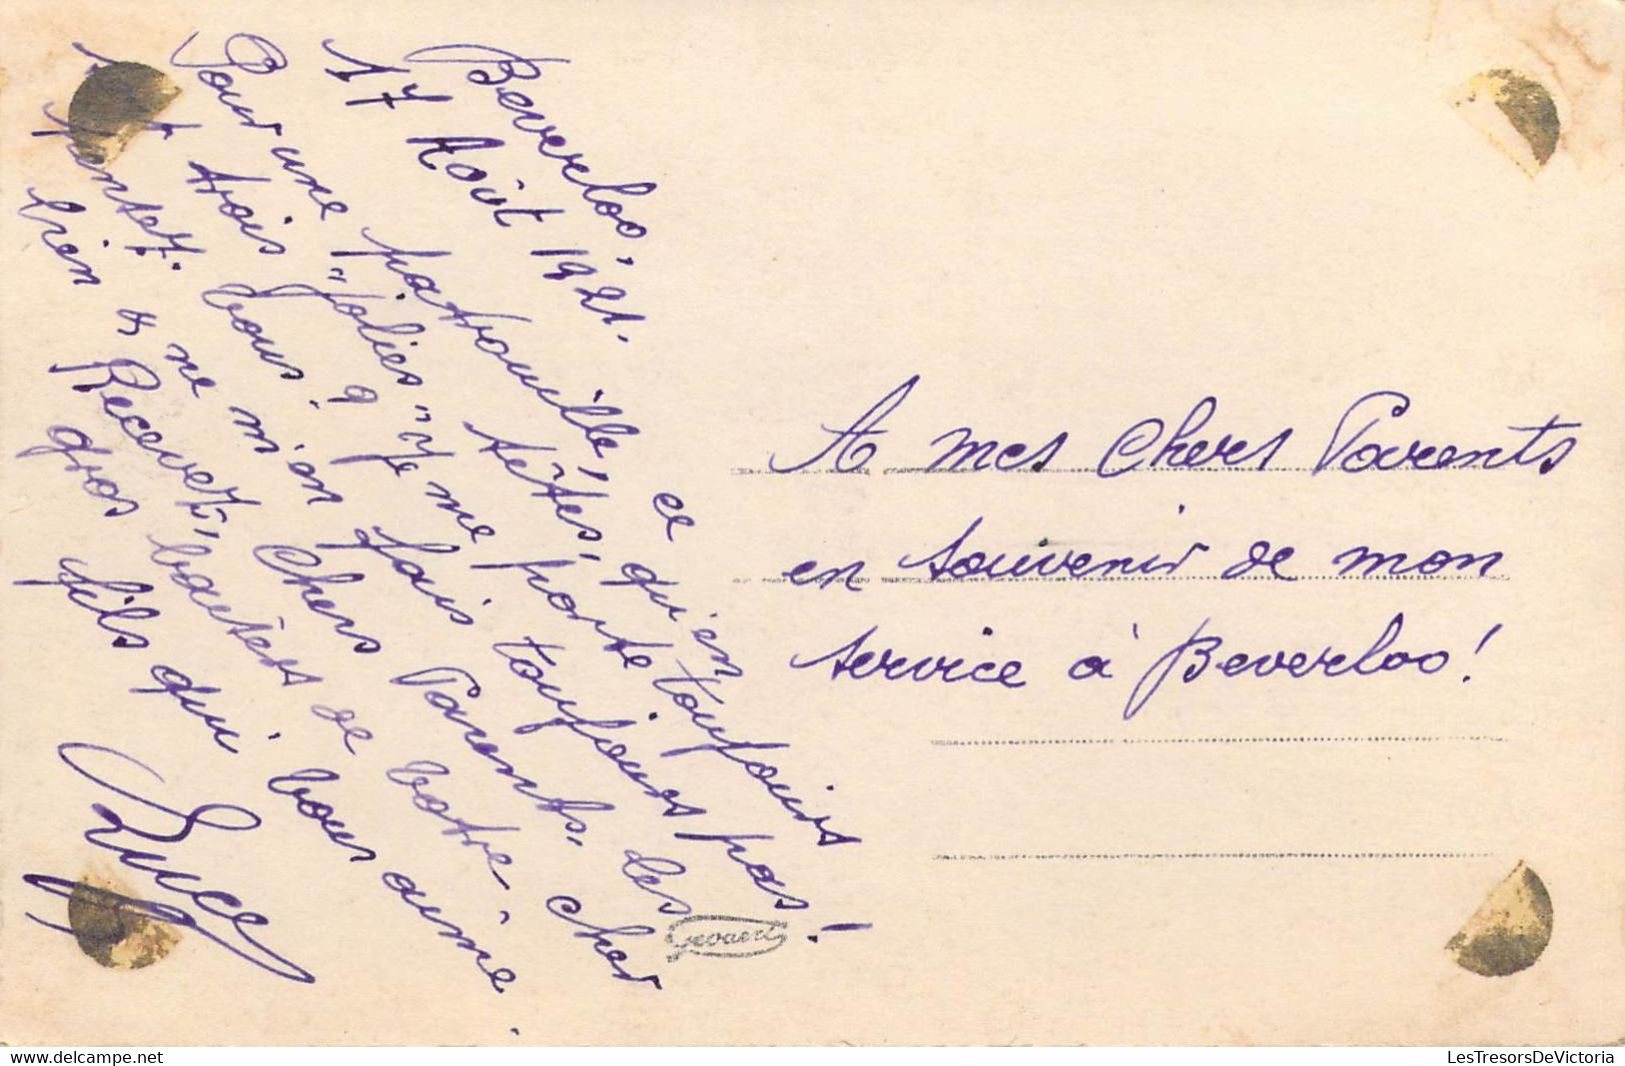 Beverloo,
17 Août 1921.
Pour une patrouille, ce qu'en
trois "jolies" têtes,
vous? Je me porte toujours
bien & ne m'en fais toujours pas!
Recevez, Chers Parents, les
gros baisers de votre cher
fils qui vous aime.
A mes Chers Parents
en souvenir de mon
service à Beverloo!
Gevaert
www.delcampe.net
LesTresorsDeVictoria